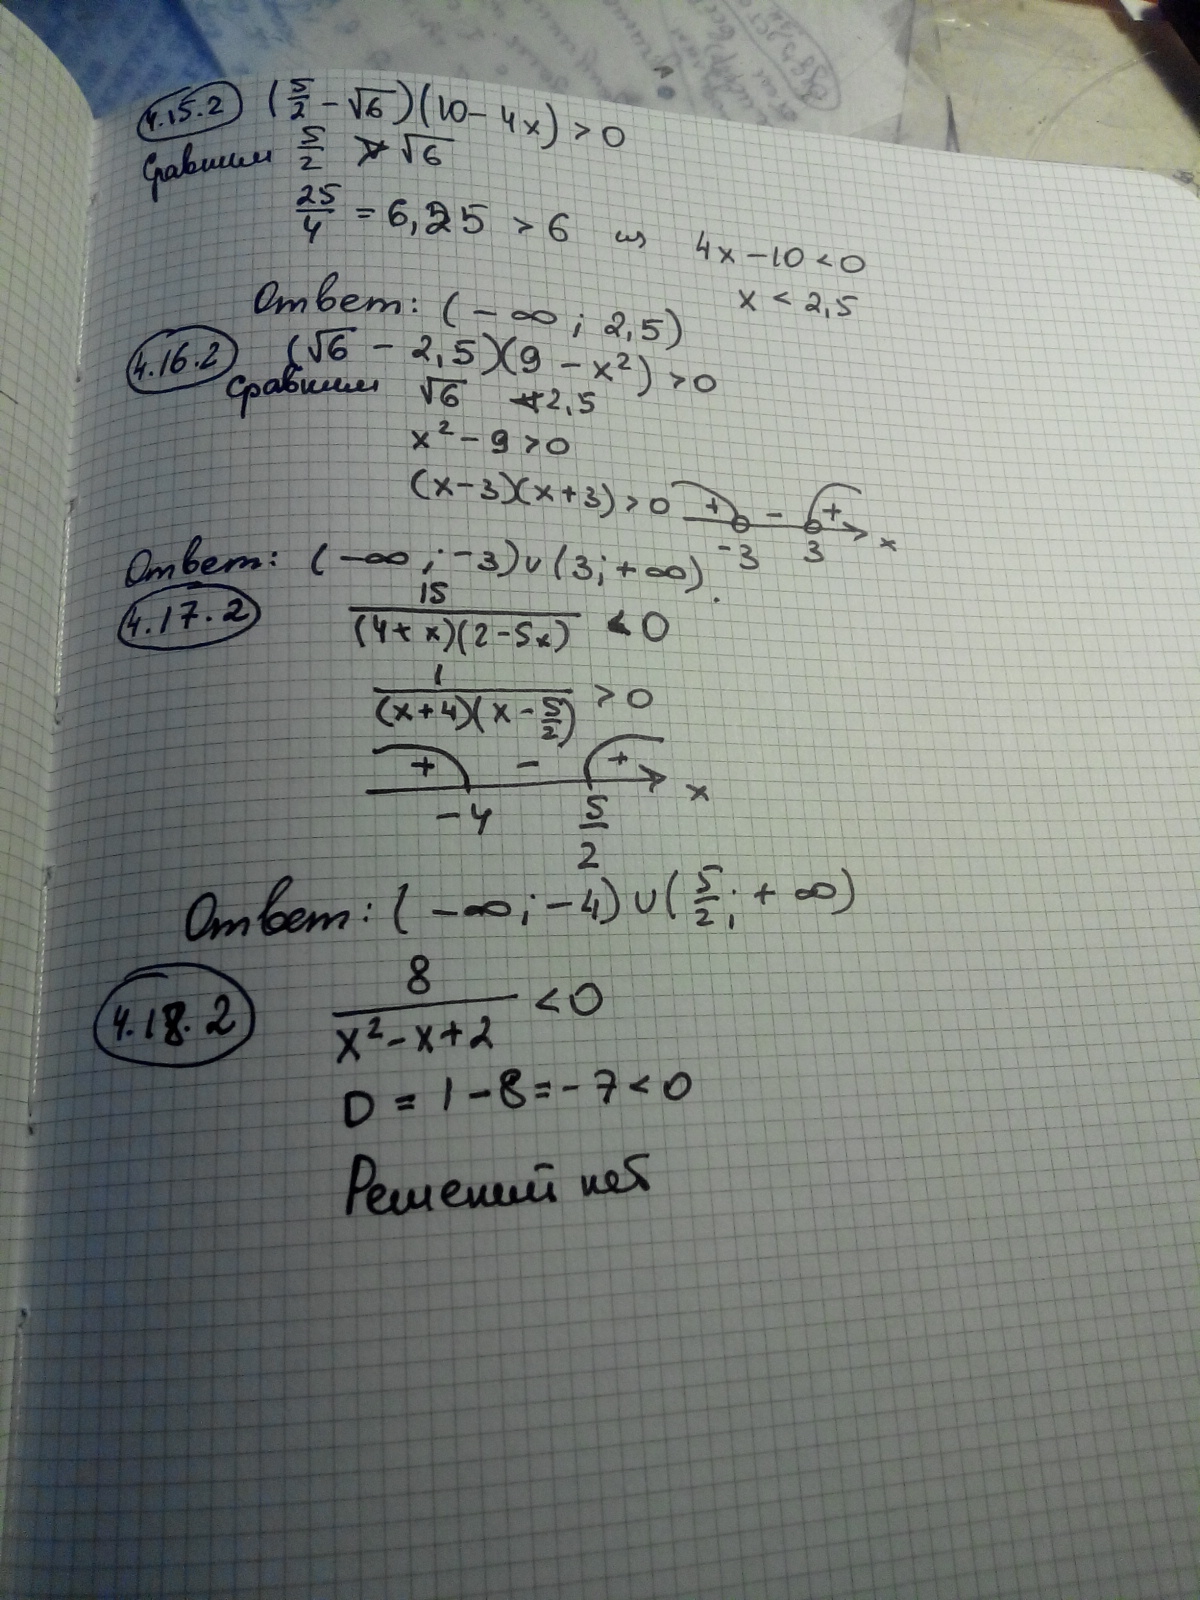 4.15.2 (5/2 - √6)(10 - 4x) > 0
Сравним 5/2 > √6
25/4 = 6,25 > 6 ⇒ 4x - 10 < 0
x < 2,5
Ответ: (-∞; 2,5)
4.16.2 (√6 - 2,5)(9 - x²) > 0
Сравним √6 < 2,5
x² - 9 > 0
(x-3)(x+3) > 0 + - +
-3 3 x
Ответ: (-∞; -3)∪(3; +∞).
4.17.2 15/((4+x)(2-5x)) < 0
1/((x+4)(x - 5/2)) > 0
+ - +
-4 5/2 x
Ответ: (-∞; -4)∪(5/2; +∞)
4.18.2 8/(x² - x + 2) < 0
D = 1 - 8 = -7 < 0
Решений нет